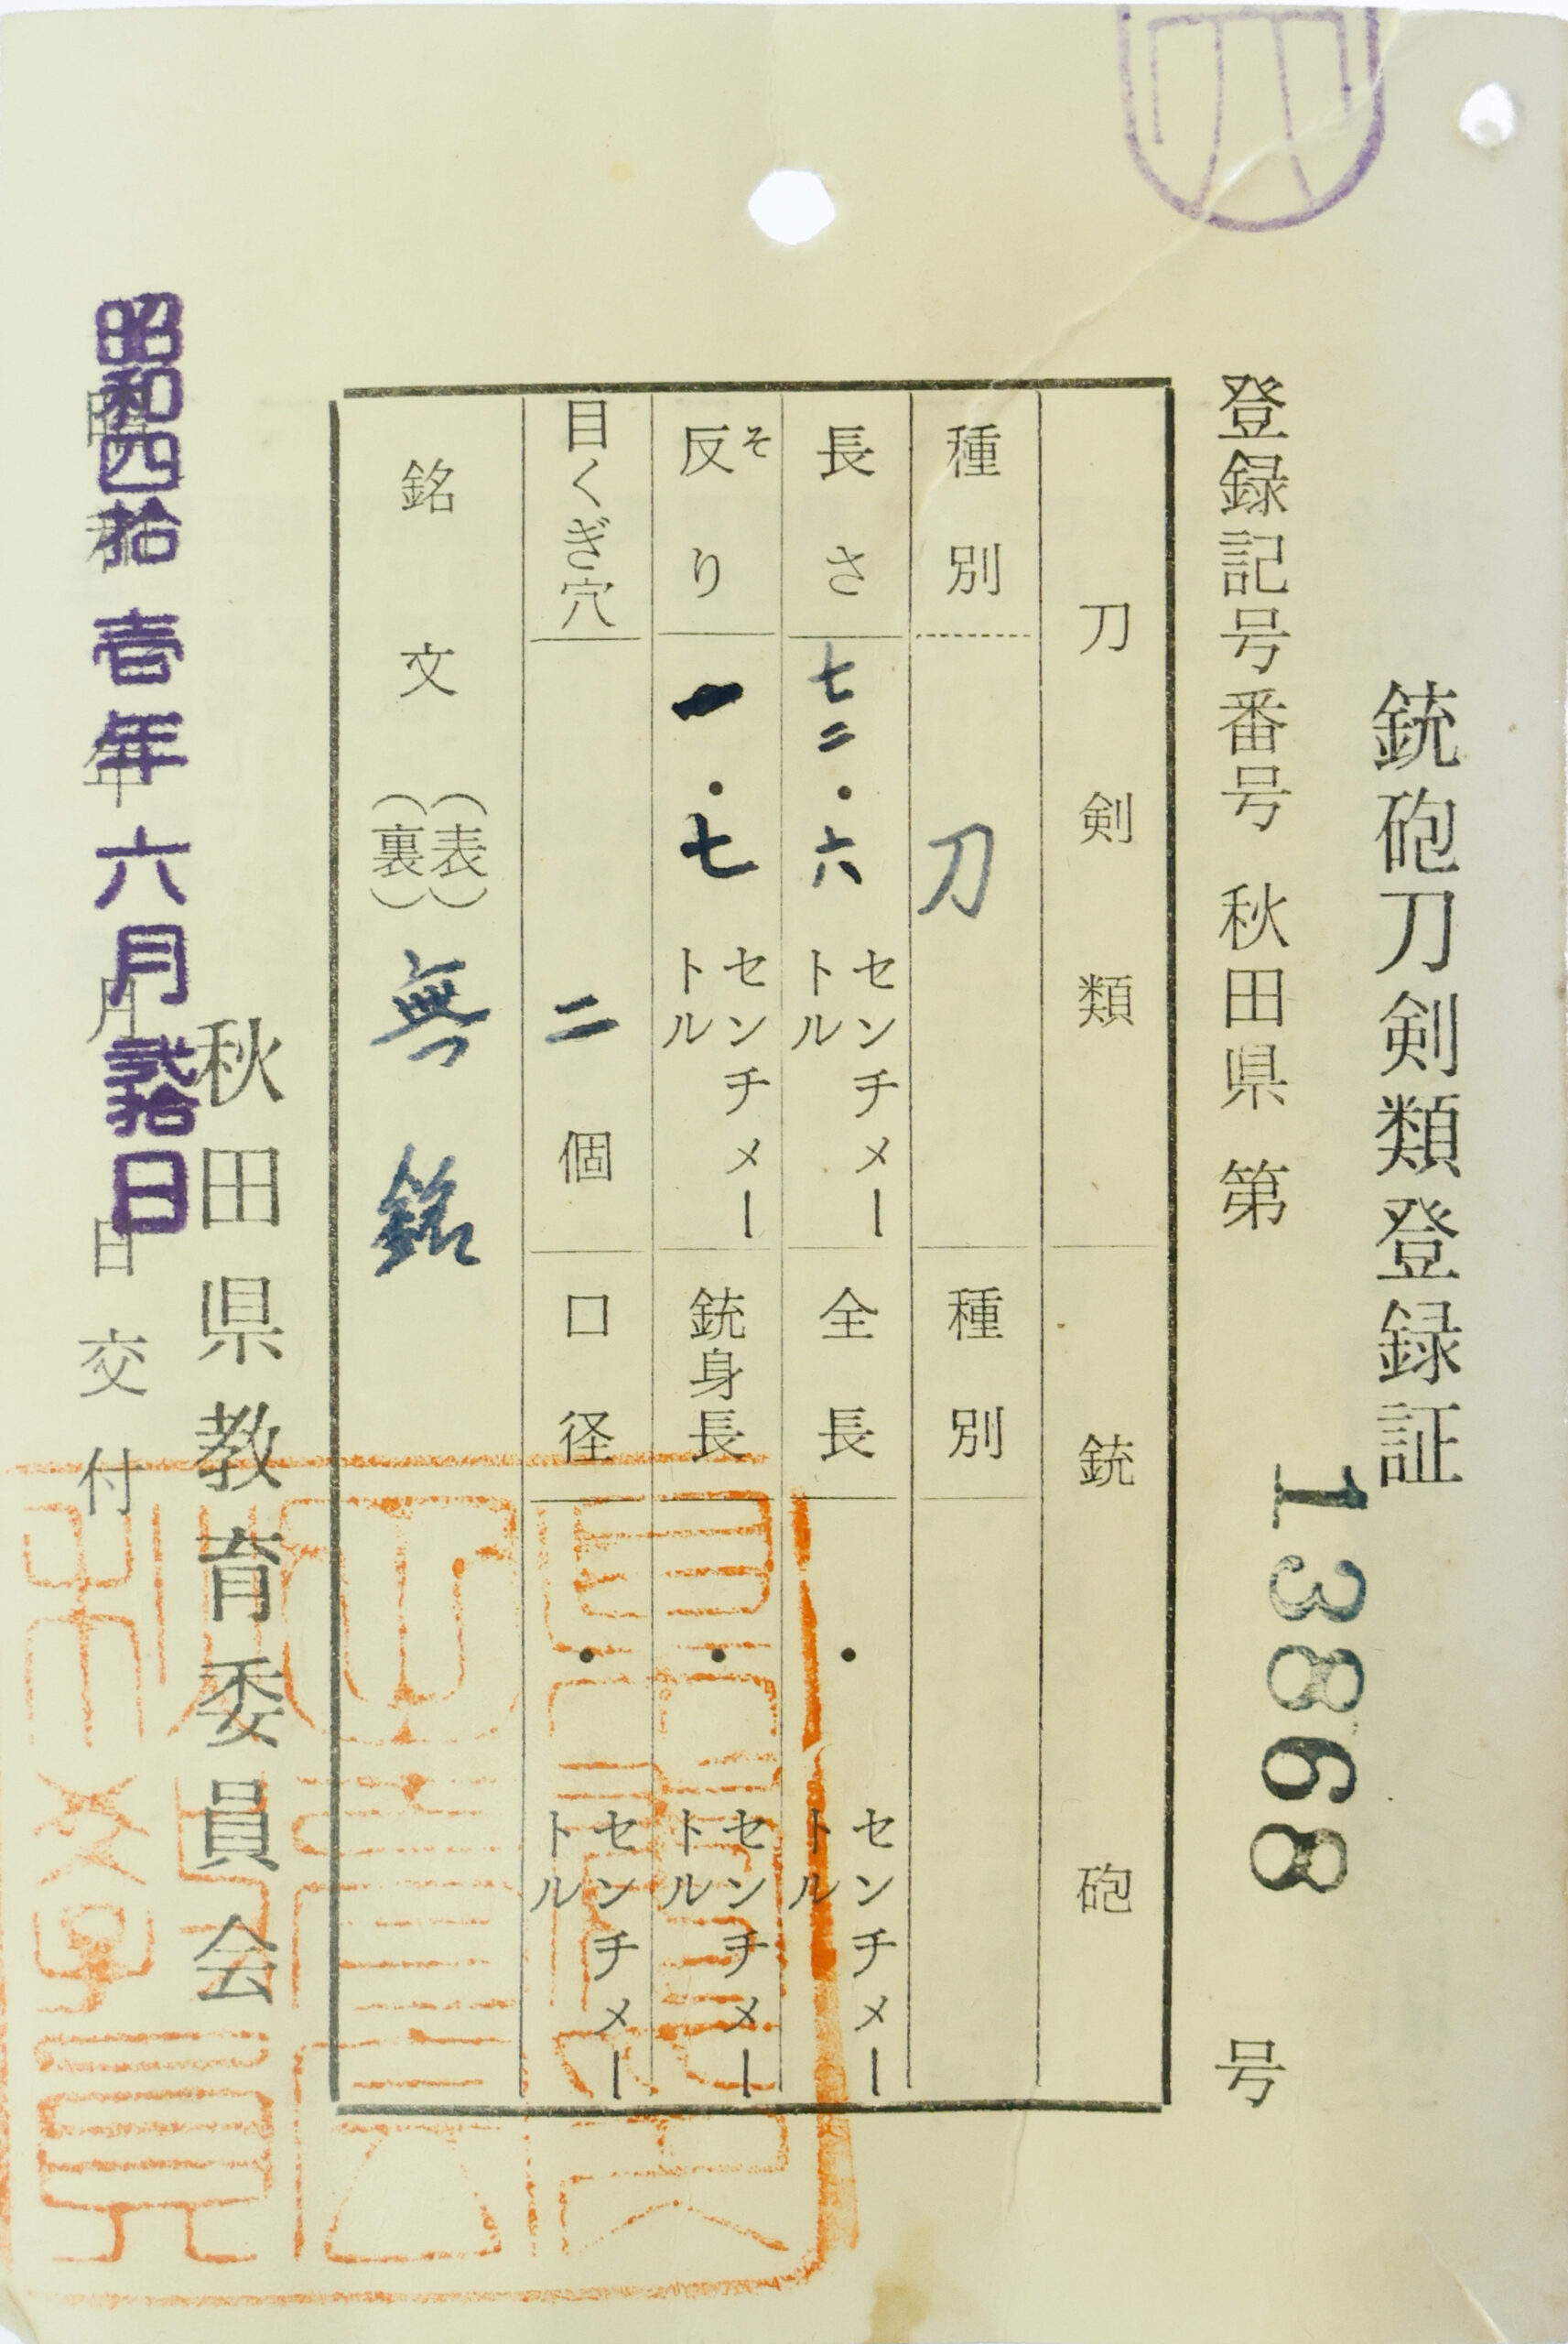 銃砲刀剣類登録証
登録記号番号 秋田県 第 13868 号
刀剣類 銃砲
種別 刀 種別
長さ 七二・六 センチメートル 全長 ・ センチメートル
反り そ 一・七 センチメートル 銃身長 ・ センチメートル
目くぎ穴 二 個 口径 ・ センチメートル
銘文 (表) (裏) 無銘
秋田県教育委員会
昭和四拾壱年六月弐拾日
昭和 年 月 日 交付